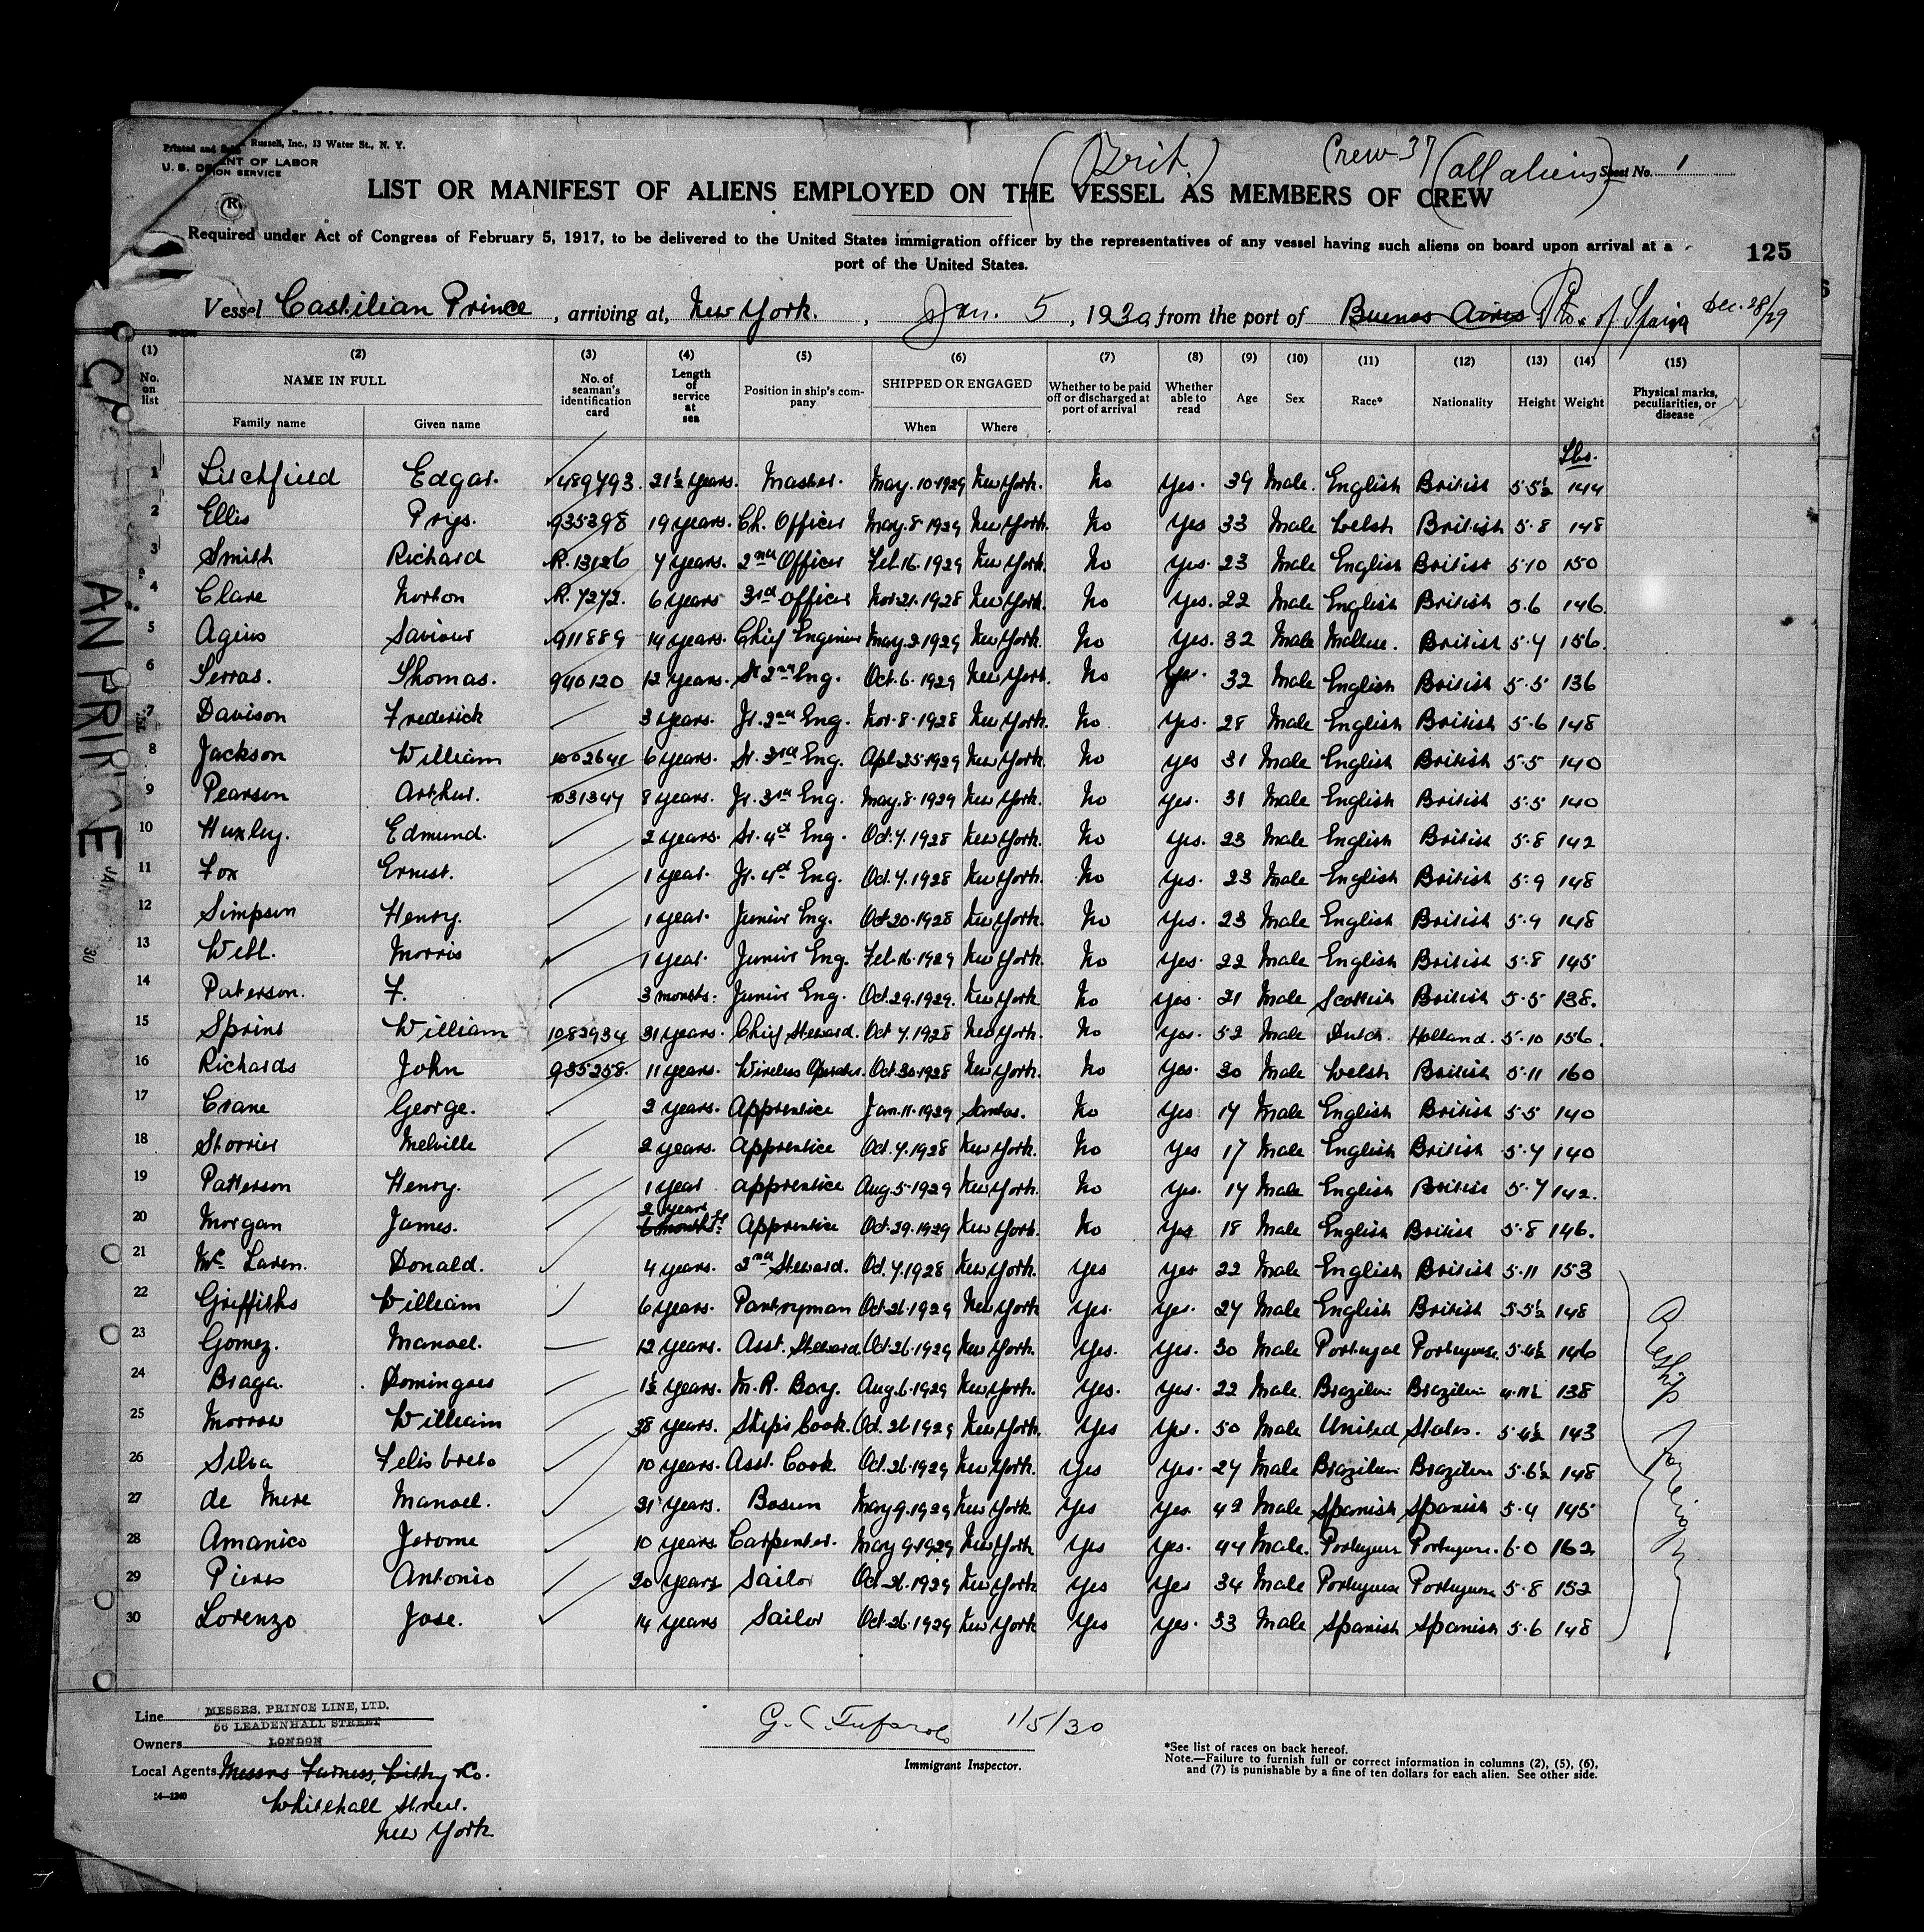 Printed and Sold Russell, Inc., 13 Water St., N. Y.
U. S. DE ENT OF LABOR
ION SERVICE
(Brit.)
Crew 37 (all aliens)
Sheet No. 1
LIST OR MANIFEST OF ALIENS EMPLOYED ON THE VESSEL AS MEMBERS OF CREW
Required under Act of Congress of February 5, 1917, to be delivered to the United States immigration officer by the representatives of any vessel having such aliens on board upon arrival at a
port of the United States.
125
Vessel Castilian Prince, arriving at, New York., Jan. 5, 1930, from the port of Buenos Aires Pto. of Spain Dec. 28/29
(1) (2) (3) (4) (5) (6) (7) (8) (9) (10) (11) (12) (13) (14) (15)
No. on list NAME IN FULL No. of seaman's identification card Length of service at sea Position in ship's company SHIPPED OR ENGAGED Whether to be paid off or discharged at port of arrival Whether able to read Age Sex Race* Nationality Height Weight Physical marks, peculiarities, or disease
Family name Given name When Where
Lbs.
1 Litchfield Edgar. 489793. 21½ years. Master. May. 10.1929 New York. No Yes. 39 Male. English British 5.5½ 144
2 Ellis Prys. 935398 19 years. Ch. Officer May. 8.1929 New York. No Yes 33 Male Welsh British 5.8 148
3 Smith Richard R. 13126 7 years. 2nd Officer Feb. 16.1929 New York. No Yes. 23 Male English British 5.10 150
4 Clare Norton R. 7272. 6 years 3rd Officer Nov. 21.1928 New York. No Yes. 22 Male English British 5.6 146.
5 Agius Saviour 911889 14 years. Chief Engineer May. 2.1929 New York. No Yes. 32 Male Maltese. British 5.4 156.
6 Serras. Thomas. 940120 12 years. Sr 2nd Eng. Oct. 6.1929 New York. No Yes. 32 Male English British 5.5 136
7 Davison Frederick 3 years. Jr. 2nd Eng. Nov. 8.1928 New York. No Yes. 28 Male English British 5.6 148
8 Jackson William 1002641 6 years. Sr. 3rd Eng. Apl. 25.1929 New York. No yes 31 Male English British 5.5 140
9 Pearson Arthur. 1031347 8 years. Jr. 3rd Eng. May. 8.1929 New York. No Yes. 31 Male English British 5.5 140
10 Huxley. Edmund. 2 years. Sr. 4th Eng. Oct. 7.1928 New York. No Yes. 23 Male English British 5.8 142
11 Fox Ernest. 1 year. Jr. 4th Eng. Oct. 7.1928 New York. No Yes. 23 Male English British 5.9 148
12 Simpson Henry. 1 year. Junior Eng. Oct. 20.1928 New York. No Yes. 23 Male English British 5.9 148
13 Webb. Morris 1 year. Junior Eng. Feb. 16.1929 New York. No Yes. 22 Male English British 5.8 145
14 Paterson. F. 3 months. Junior Eng. Oct. 29.1929. New York. No Yes. 21 Male Scottish British 5.5 138.
15 Sprint William 1082934 31 years. Chief Steward. Oct 7.1928 New York. No Yes. 52 Male Dutch. Holland. 5.10 156.
16 Richards John 935258. 11 years. Wireless Operator. Oct. 30.1928 New York. No Yes. 30 Male Welsh British 5.11 160
17 Crane George. 2 years. Apprentice Jan. 11.1929 Santos. No Yes 17 Male English British 5.5 140
18 Storrier Melville 2 years. Apprentice Oct. 7.1928 New York. No Yes 17 Male English British 5.4 140
19 Patterson Henry. 1 year apprentice Aug. 5.1929 New York. No Yes. 17 Male English British 5.7 142.
20 Morgan James. 2 years 6 months Apprentice Oct. 29.1929 New York. No Yes 18 Male English British 5.8 146.
21 Mc Laren. Donald. 4 years. 2nd Steward. Oct. 7.1928 New York. Yes Yes 22 Male English British 5.11 153
22 Griffiths William 6 years. Pantryman Oct. 26.1929 New York Yes. Yes. 27 Male English British 5.5½ 148
23 Gomez. Manoel. 12 years. Asst. Steward. Oct. 26.1929 New York Yes. Yes. 30 Male Portugal Portuguese. 5.4½ 146
24 Braga. Domingoes 1½ years. M. R. Boy. Aug. 6.1929 New York. Yes. Yes. 22 Male. Brazilian Brazilian 4.11½ 138
25 Morrow William 38 years. Ship's Cook. Oct. 26.1929 New York. Yes Yes. 50 Male United States. 5.4½ 143
26 Silva Felisberto 10 years. Asst. Cook. Oct. 26.1929 New York. Yes Yes. 27 Male Brazilian Brazilian 5.6½ 148
27 de Mere Manoel. 21 years. Bosun May 9.1929 New York Yes Yes 42 Male Spanish Spanish 5.4 145
28 Amanico Jerome 10 years Carpenter. May 9.1929 New York Yes Yes. 44 Male. Portuguese Portuguese. 6.0 162
29 Pieres Antonio 20 years Sailor Oct. 26.1929 New York Yes Yes 34 Male Portuguese Portuguese 5.8 152
30 Lorenzo Jose. 14 years Sailor Oct. 26.1929 New York Yes Yes. 33 Male Spanish Spanish 5.6 148
Reship Foreign
Line MESSRS. PRINCE LINE, LTD.
56 LEADENHALL STREET
Owners LONDON
Local Agents Messrs Furness, Withy & Co.
Whitehall Street.
New York
14—1240
1/5/30
Immigrant Inspector.
*See list of races on back hereof.
Note.—Failure to furnish full or correct information in columns (2), (5), (6),
and (7) is punishable by a fine of ten dollars for each alien. See other side.